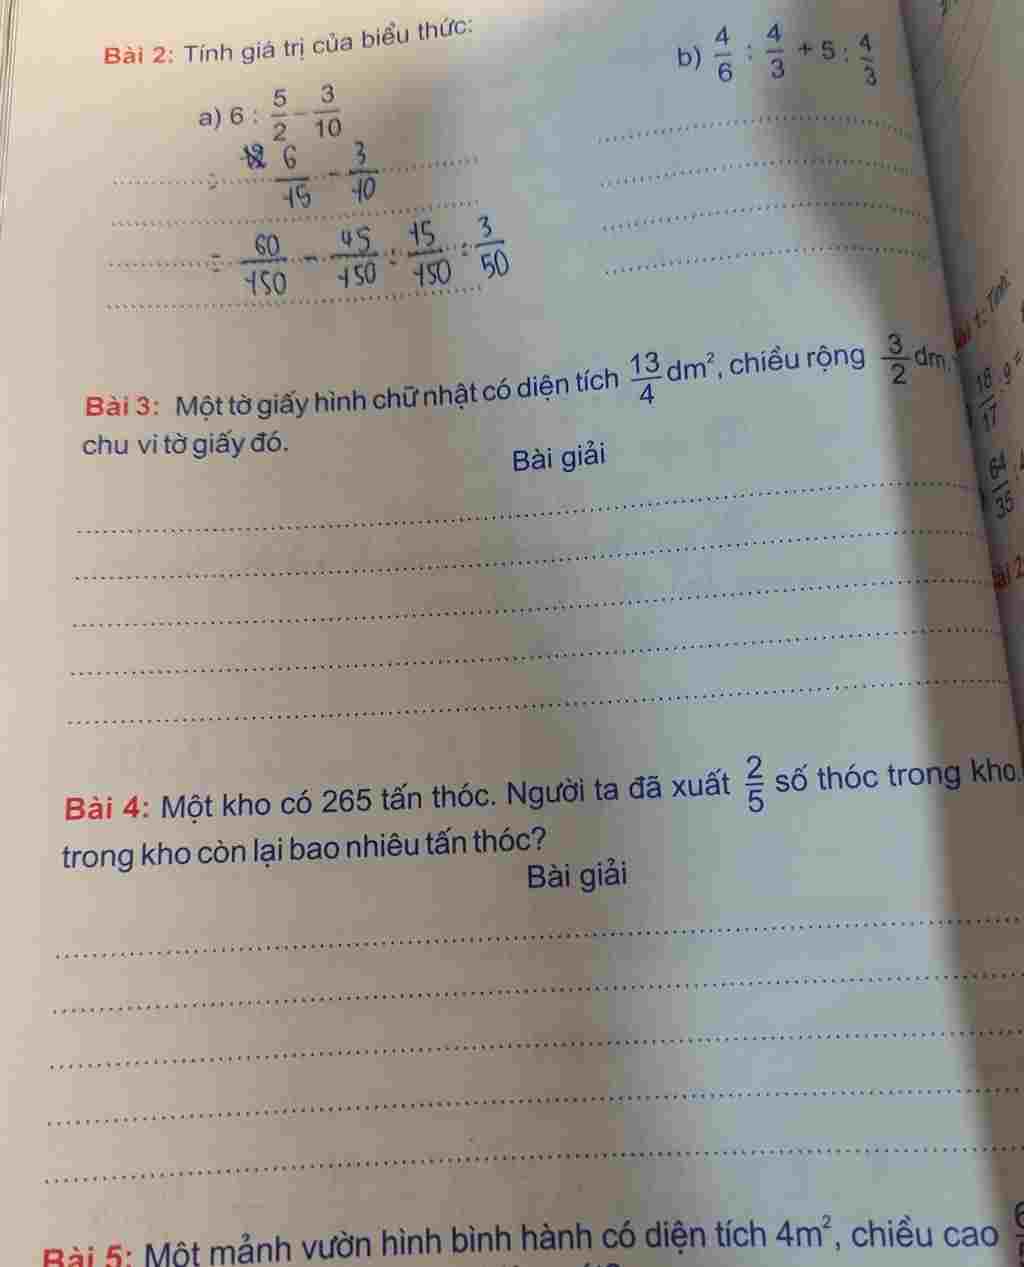 Bài 2: Tính giá trị của biểu thức:
a) 6 : 5/2 - 3/10
= 6/15 - 3/10
= 60/150 - 45/150 = 15/150 = 3/50
b) 4/6 : 4/3 + 5 : 4/3
Bài 3: Một tờ giấy hình chữ nhật có diện tích 13/4 dm², chiều rộng 3/2 dm.
chu vi tờ giấy đó.
Bài giải
Bài 4: Một kho có 265 tấn thóc. Người ta đã xuất 2/5 số thóc trong kho.
trong kho còn lại bao nhiêu tấn thóc?
Bài giải
Bài 5: Một mảnh vườn hình bình hành có diện tích 4m², chiều cao
1: Tính:
18/17 : 9 =
64/35 :
Bài 2